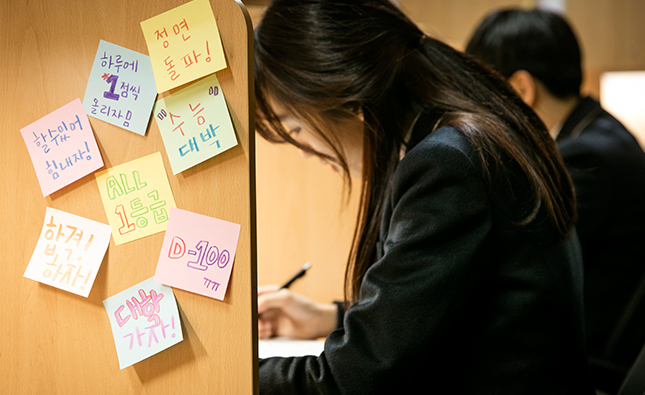 정면
돌파!
하루에
*1점씩
올리자!!
"수능"
대박
할수있어
힘내자!
ALL
1등급
합격!
하자!
D-100
ㅠㅠ
대학
가자!